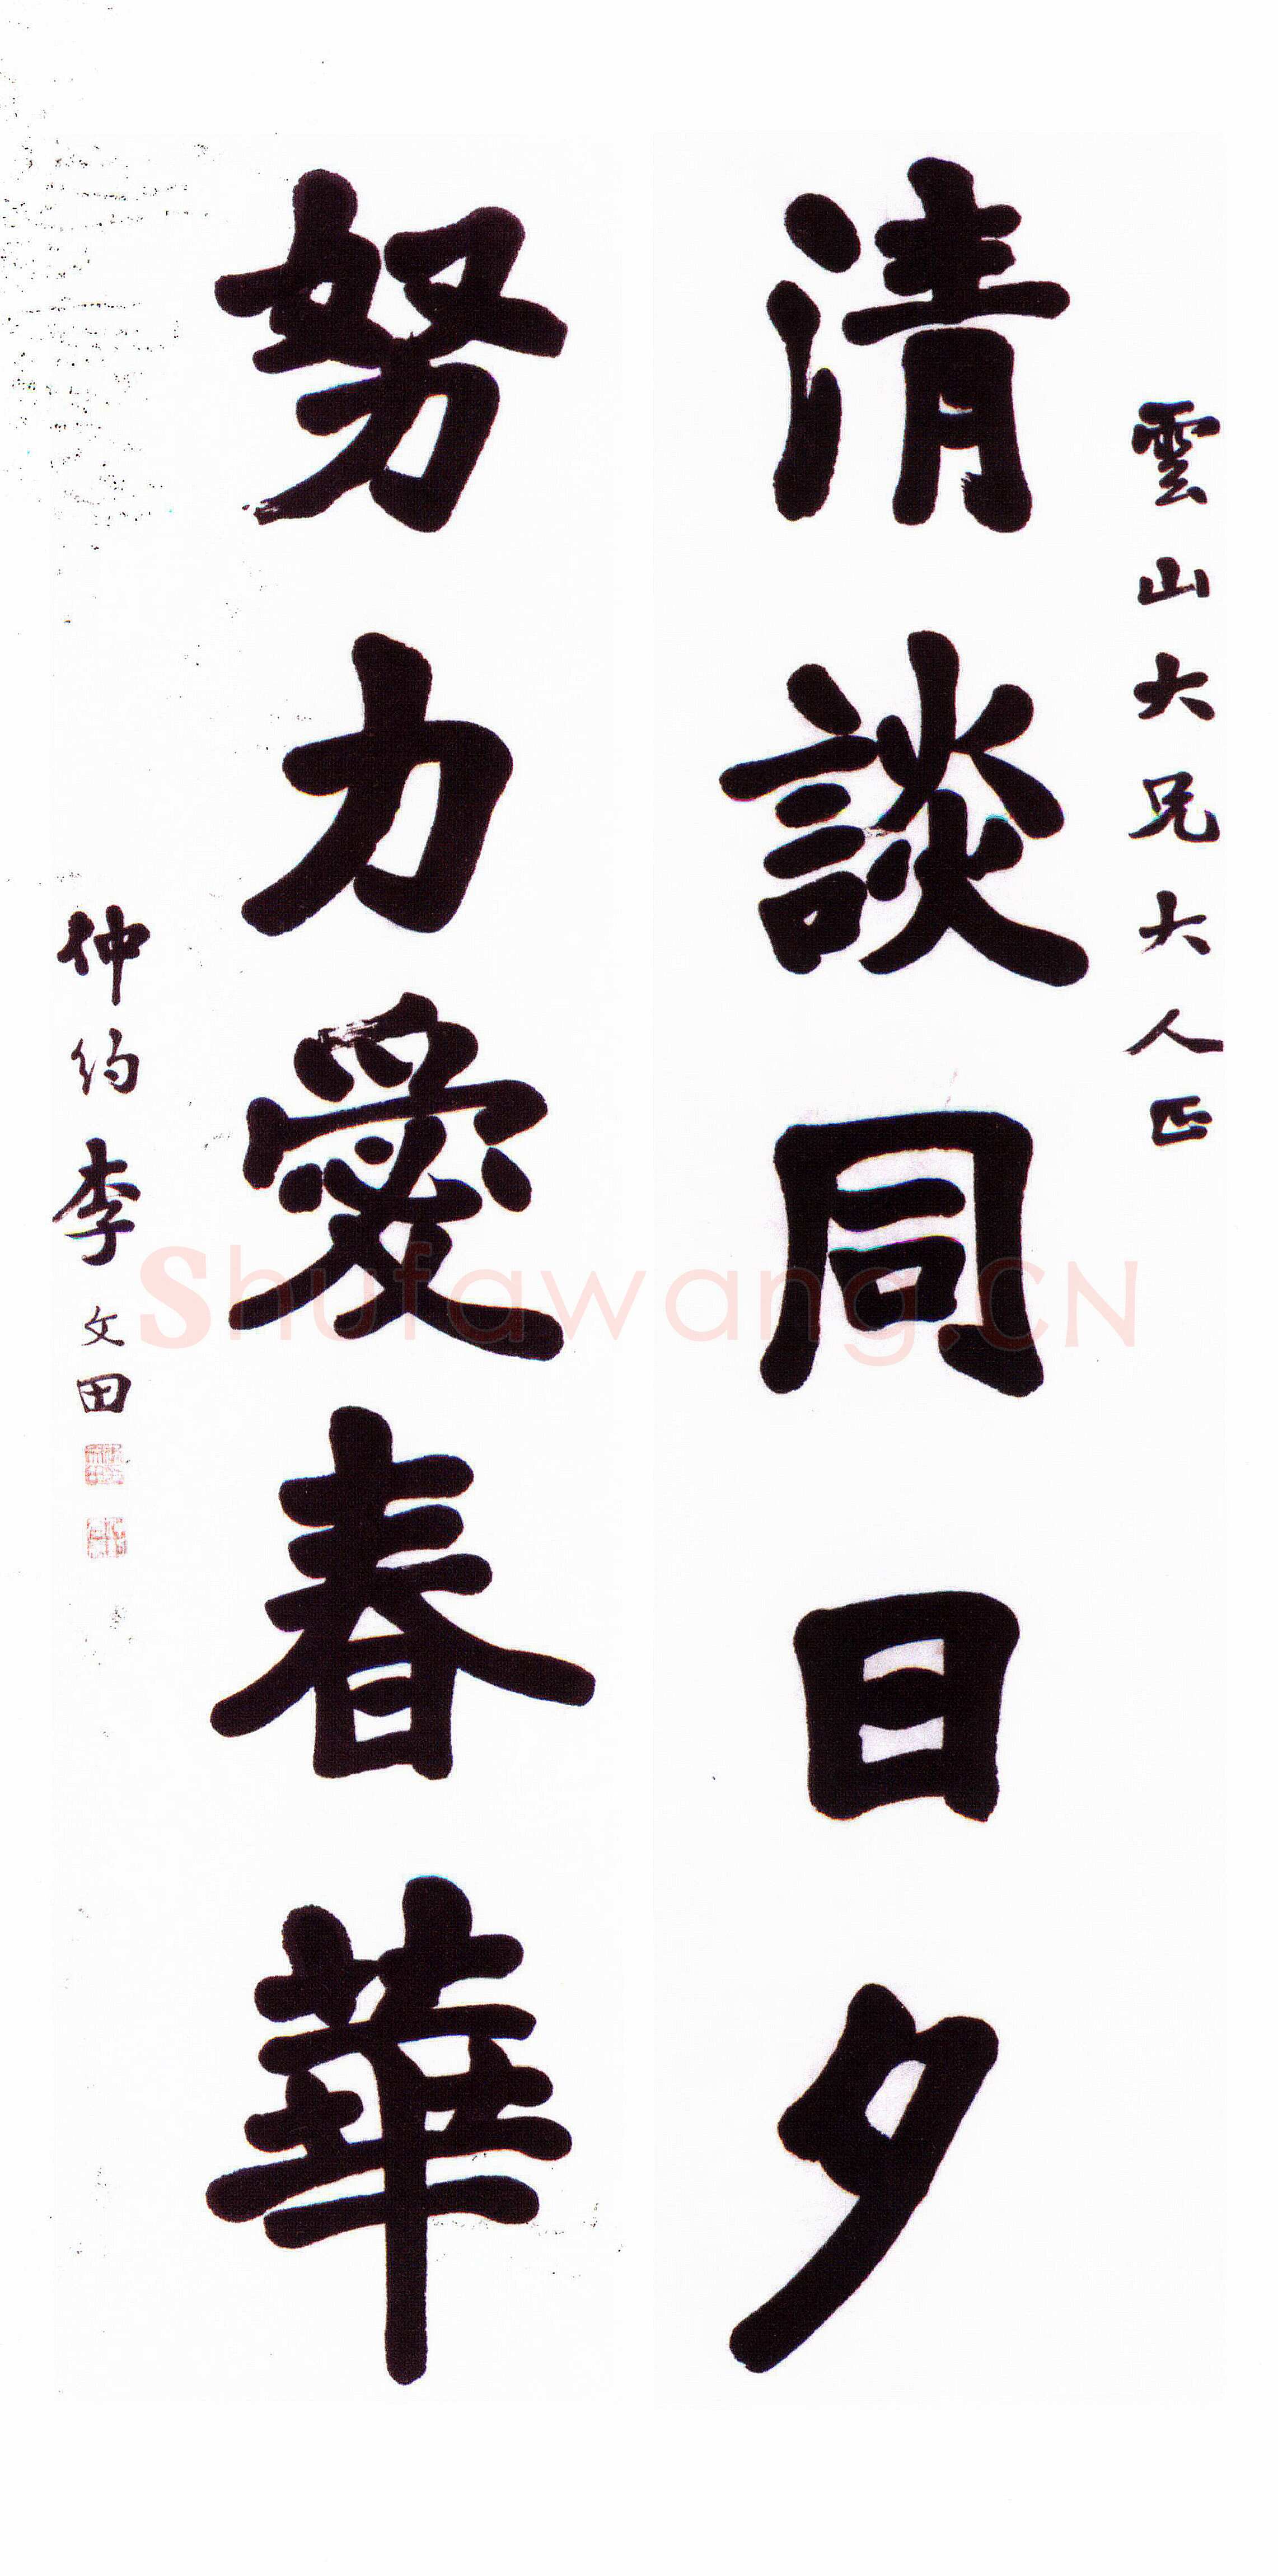 雲山大兄大人正
清談同日夕
努力愛春華
仲約李文田
Shufawang.CN